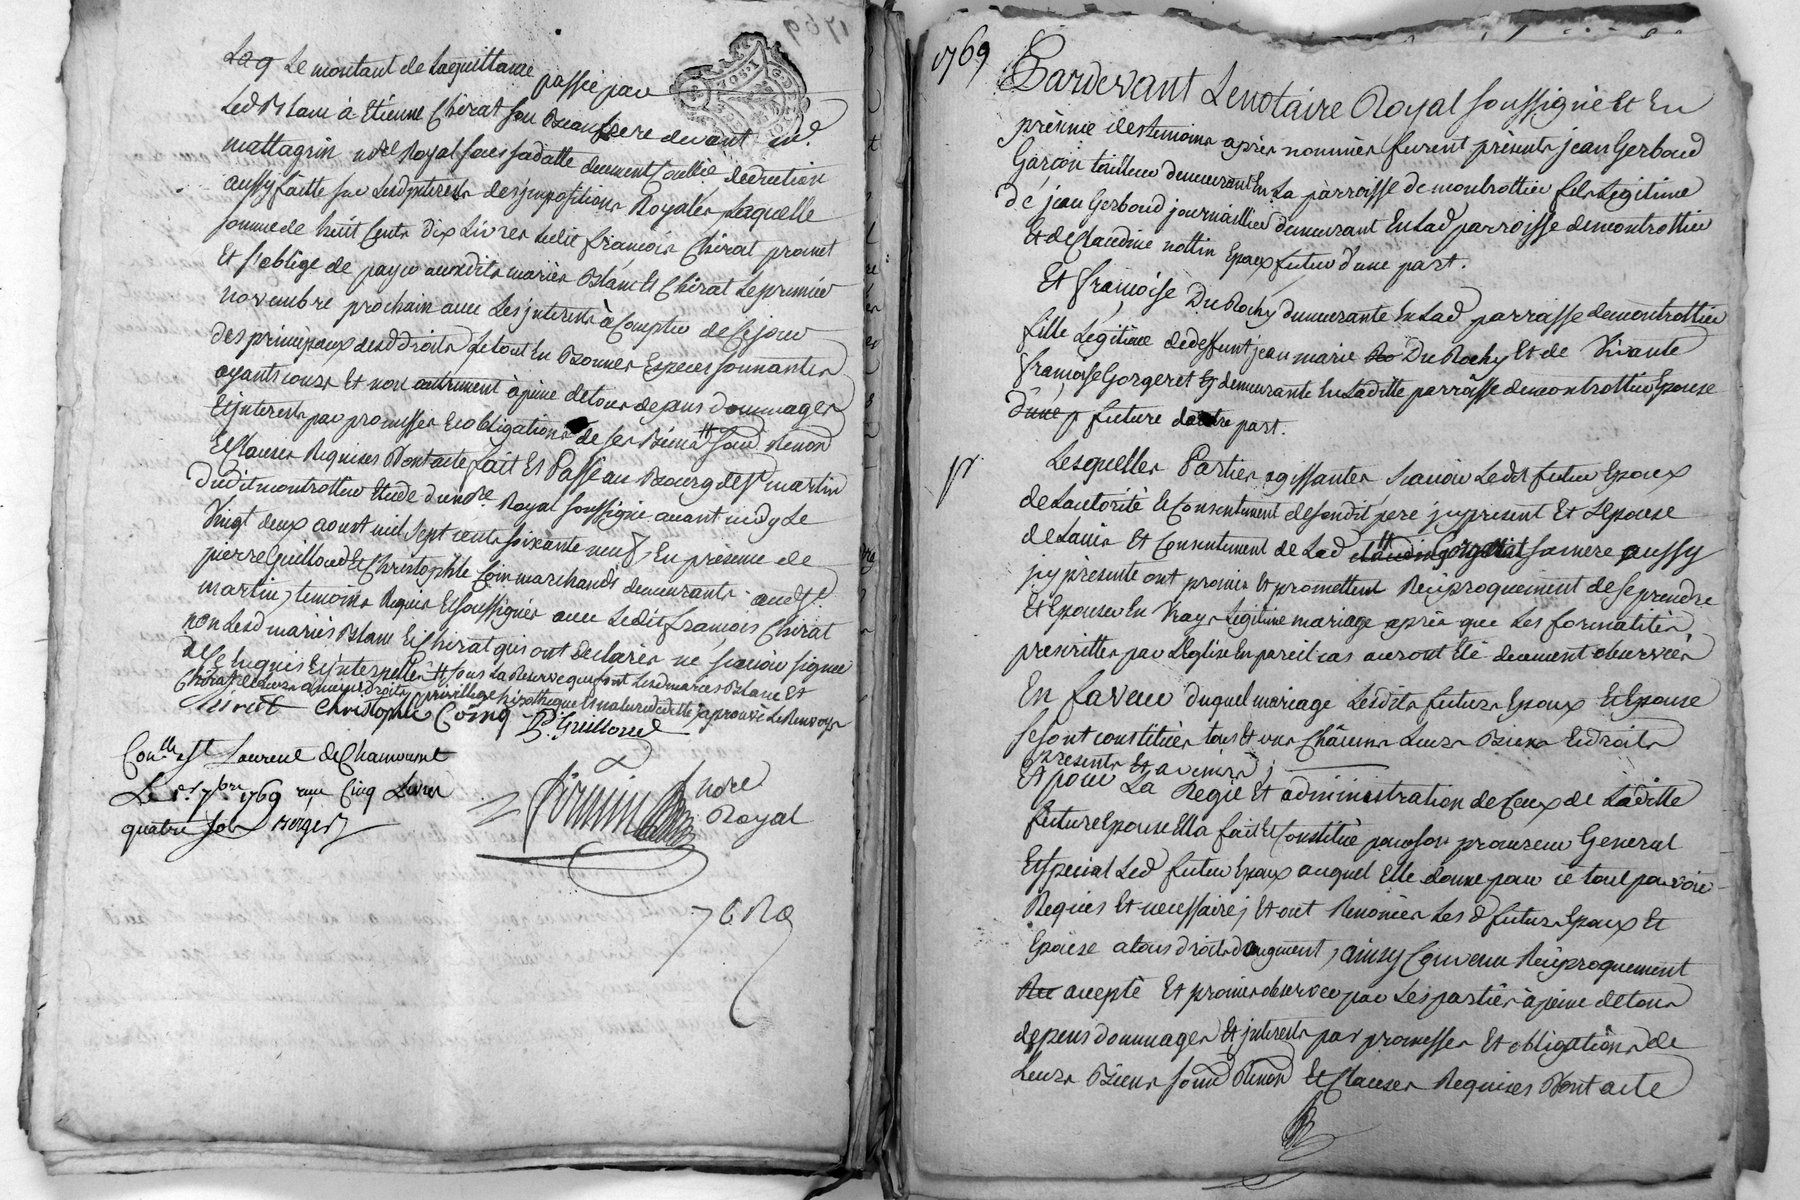 Led. Le montant de laquittance passée par
Led Blanc à Etienne Chirat son Beaufrere devant me.
mattagrin nore Royal sous sadatte deument Coullée dédiction
aussy faitte sur lesd interests des impositions Royales Laquelle
somme de huit Cents Dix Livres ledit françois Chirat promet
Et s'oblige de payer auxdits mariés Blanc Et Chirat le premier
novembre prochain avec Les interests à Compter de Ce jour
des principaux desd droits le tout En Bonnes Especes sonnantes
ayants cours Et non autrement à peine de tous depans dommages
Et interests par promesses Et obligations de ses Biens # soud Renond
Et Clauses Requises Dont acte fait Et Passé au Bourg de St martin
Dudit montrottier Etude dunore. Royal soussigné avant midy Le
Vingt deux aoust mil sept cents soixante neuf, En présence de
pierre Guilloud Et Christophle Coin marchands demeurants aud St.
martin, temoins Requis Et soussignés avec Ledit françois Chirat
non Lesd mariés Blanc Et Chirat qui ont declarés ne sçavoir signer
de Ce Enquis Et interpellés # sous La Reserve que font Lesd mariés Blanc Et
Chirat de Leurs droits privillege hipotheque Et nature de dette approuvé Le Renvoy
Chirat Christophle Coing P. Guilloud
Conlle a St Laurent de Chamousset
Le 1er 7bre 1769 reçu Cinq Livres
quatre sols Berger
nore
Royal
1769
1769
Pardevant Le notaire Royal soussigné Et En
présence des temoins après nommés furent présents jean Gerboud
Garçon tailleur demeurant En La parroisse de montrottier fils Legitime
de jean Gerboud journaillier demeurant En Lad parroisse de montrottier
Et de Claudine nottin Epoux futur d'une part.
Et françoise DuRochy demeurante En Lad parroisse de montrottier
fille Legitime de deffunt jean marie Ro DuRochy Et de Vivante
françoise Gorgeret Eg demeurante En Laditte parroisse de montrottier Epouse
d'une p future dautre part.
Lesquelles Parties agissantes, sçavoir Ledit futur Epoux
de Lautorité Et Consentement de sondit pere jcy present Et LEpouse
de Lavis Et Consentement de Lad Gorgeret sa mere aussy
jcy présente ont promis Et promettent Réciproquement de se prendre
Et Epouser En Vray Légitime mariage après que Les formalités
prescrittes par LEglise En pareil cas auront Eté deument observées
En faveur duquel mariage Lesdits futurs Epoux Et Epouse
se sont constitués tous Et uns Châcuns Leurs Biens Et droits
présents Et avenirs;
Et pour La Regie Et administration de Ceux de Laditte
future Epouse Ella fait Et Constitué pour son procureur General
Et special Led futur Epoux auquel Elle donne pour ce tout pouvoir
Requis Et necessaire; Et ont Renoncés Les d futurs Epoux Et
Epouse a tous droits d'augment, ainsy Convenu Réciproquement
Rec accepté Et promis observer par Les parties à peine de tous
depens dommages Et interests par promesses Et obligations de
Leurs Biens soud Renond Et Clauses Requises Dont acte